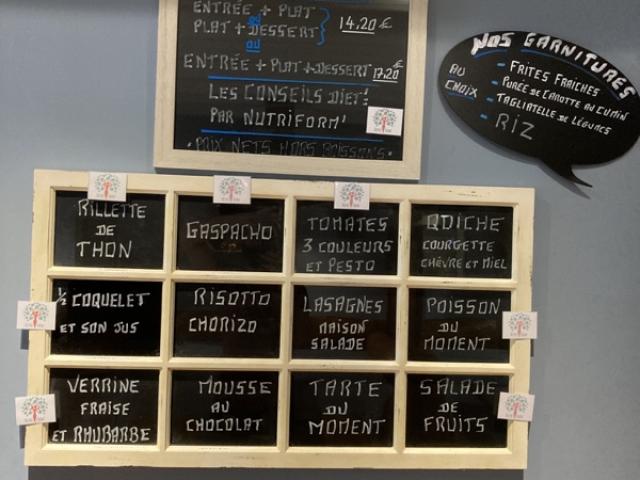 ENTRÉE + PLAT
OU
PLAT + DESSERT
14.20 €
OU
ENTRÉE + PLAT + DESSERT 17.20 €
LES CONSEILS DIET!
PAR NUTRIFORM'
• PRIX NETS HORS BOISSONS •
NOS GARNITURES
AU
CHOIX
- FRITES FRAÎCHES
- PURÉE DE CAROTTE AU CUMIN
- TAGLIATELLE DE LÉGUMES
- RIZ
RILLETTE
DE
THON
GASPACHO
TOMATES
3 COULEURS
ET PESTO
QUICHE
COURGETTE
CHÈVRE ET MIEL
½ COQUELET
ET SON JUS
RISOTTO
CHORIZO
LASAGNES
MAISON
SALADE
POISSON
DU
MOMENT
VERRINE
FRAISE
ET RHUBARBE
MOUSSE
AU
CHOCOLAT
TARTE
DU
MOMENT
SALADE
DE
FRUITS